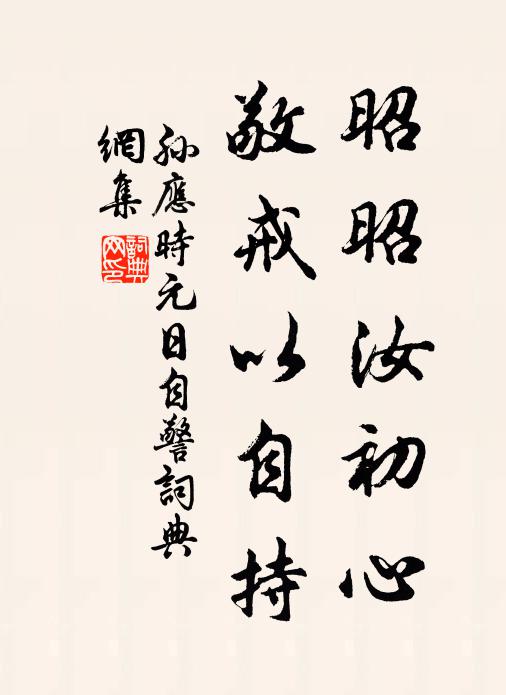 昭昭汝初心
敬戒以自持
孫應時元日自警詞典
網集
詞典
网印